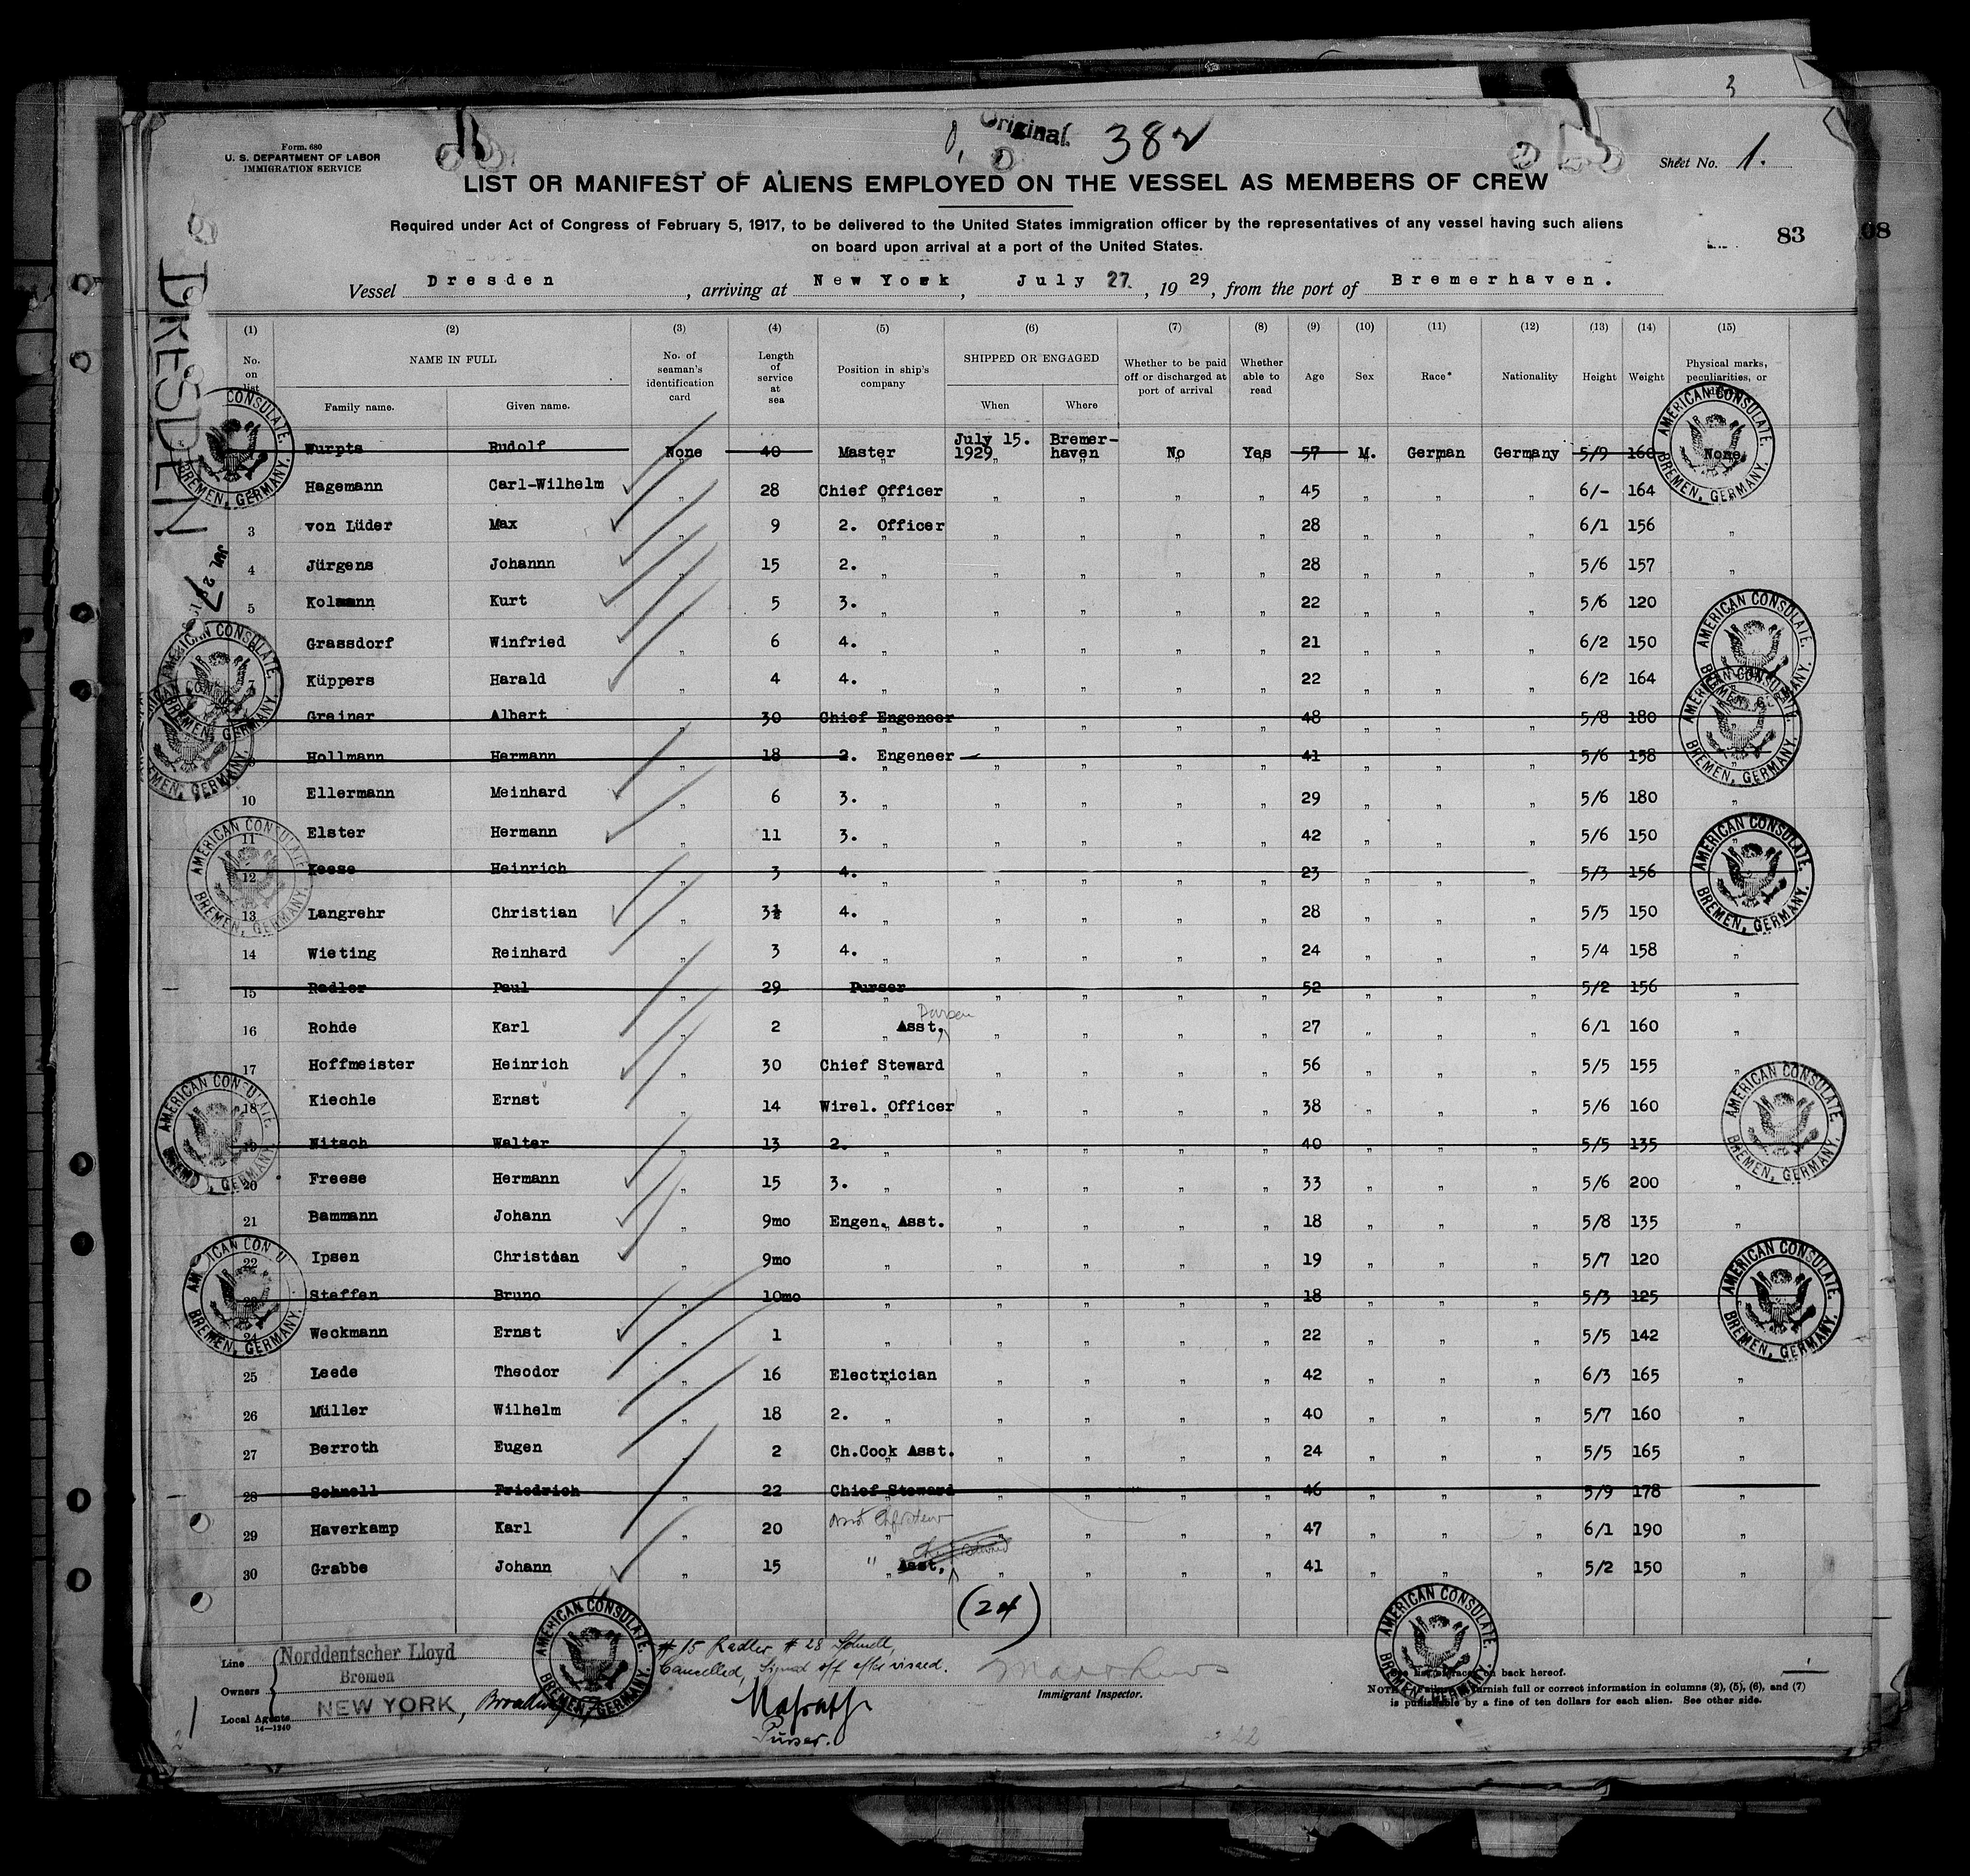 3
Original
382
Form. 680
U. S. DEPARTMENT OF LABOR
IMMIGRATION SERVICE
Sheet No. 1.
LIST OR MANIFEST OF ALIENS EMPLOYED ON THE VESSEL AS MEMBERS OF CREW
Required under Act of Congress of February 5, 1917, to be delivered to the United States immigration officer by the representatives of any vessel having such aliens
on board upon arrival at a port of the United States.
83
08
Vessel Dresden, arriving at New York, July 27., 1929, from the port of Bremerhaven.
DRESDEN
JUL 27
(1) (2) (3) (4) (5) (6) (7) (8) (9) (10) (11) (12) (13) (14) (15)
No. on list
NAME IN FULL
Family name. Given name.
No. of seaman's identification card
Length of service at sea
Position in ship's company
SHIPPED OR ENGAGED
When Where
Whether to be paid off or discharged at port of arrival
Whether able to read
Age Sex Race* Nationality Height Weight
Physical marks, peculiarities, or
Wurpts Rudolf None 40 Master July 15. 1929 Bremer-haven No Yes 57 M. German Germany 5/9 160 None
Hagemann Carl-Wilhelm " 28 Chief Officer " " " " 45 " " " 6/- 164
3 von Lüder Max " 9 2. Officer " " " " 28 " " " 6/1 156 "
4 Jürgens Johannn " 15 2. " " " " " 28 " " " 5/6 157 "
5 Kolmann Kurt " 5 3. " " " " " 22 " " " 5/6 120
Grassdorf Winfried " 6 4. " " " " " 21 " " " 6/2 150
7 Küppers Harald " 4 4. " " " " " 22 " " " 6/2 164
Greiner Albert " 30 Chief Engeneer " " " " 48 " " " 5/8 180 "
9 Hollmann Hermann " 18 2. Engeneer " " " " 41 " " " 5/6 158 "
10 Ellermann Meinhard " 6 3. " " " " " 29 " " " 5/6 180 "
11 Elster Hermann " 11 3. " " " " " 42 " " " 5/6 150 "
12 Keese Heinrich " 3 4. " " " " " 23 " " " 5/3 156
13 Langrehr Christian " 3½ 4. " " " " " 28 " " " 5/5 150
14 Wieting Reinhard " 3 4. " " " " " 24 " " " 5/4 158 "
15 Radler Paul " 29 Purser " " " " 52 " " " 5/2 156 "
16 Rohde Karl " 2 " Asst. " " " " 27 " " " 6/1 160 "
17 Hoffmeister Heinrich " 30 Chief Steward " " " " 56 " " " 5/5 155 "
18 Kiechle Ernst " 14 Wirel. Officer " " " " 38 " " " 5/6 160
19 Nitsch Walter " 13 2. " " " " " 40 " " " 5/5 135
20 Freese Hermann " 15 3. " " " " " 33 " " " 5/6 200 "
21 Bammann Johann " 9mo Engen. Asst. " " " " 18 " " " 5/8 135 "
22 Ipsen Christian " 9mo " " " " " 19 " " " 5/7 120
23 Steffen Bruno " 10mo " " " " " 18 " " " 5/3 125 "
24 Weckmann Ernst " 1 " " " " " 22 " " " 5/5 142
25 Leede Theodor " 16 Electrician " " " " 42 " " " 6/3 165 "
26 Müller Wilhelm " 18 2. " " " " " 40 " " " 5/7 160 "
27 Berroth Eugen " 2 Ch.Cook Asst. " " " " 24 " " " 5/5 165 "
28 Schnell Friedrich " 22 Chief Steward " " " " 46 " " " 5/9 178 "
29 Haverkamp Karl " 20 " " " " " 47 " " " 6/1 190 "
30 Grabbe Johann " 15 " Asst. " " " " 41 " " " 5/2 150 "
(24)
AMERICAN CONSULATE.
BREMEN, GERMANY.
Line Norddeutscher Lloyd
Owners Bremen
Local Agents NEW YORK,
14—1240
# 15 Radler, # 28 Schnell,
Cancelled, Signed off after visaed.
Purser.
Immigrant Inspector.
on back hereof.
furnish full or correct information in columns (2), (5), (6), and (7)
is punishable by a fine of ten dollars for each alien. See other side.